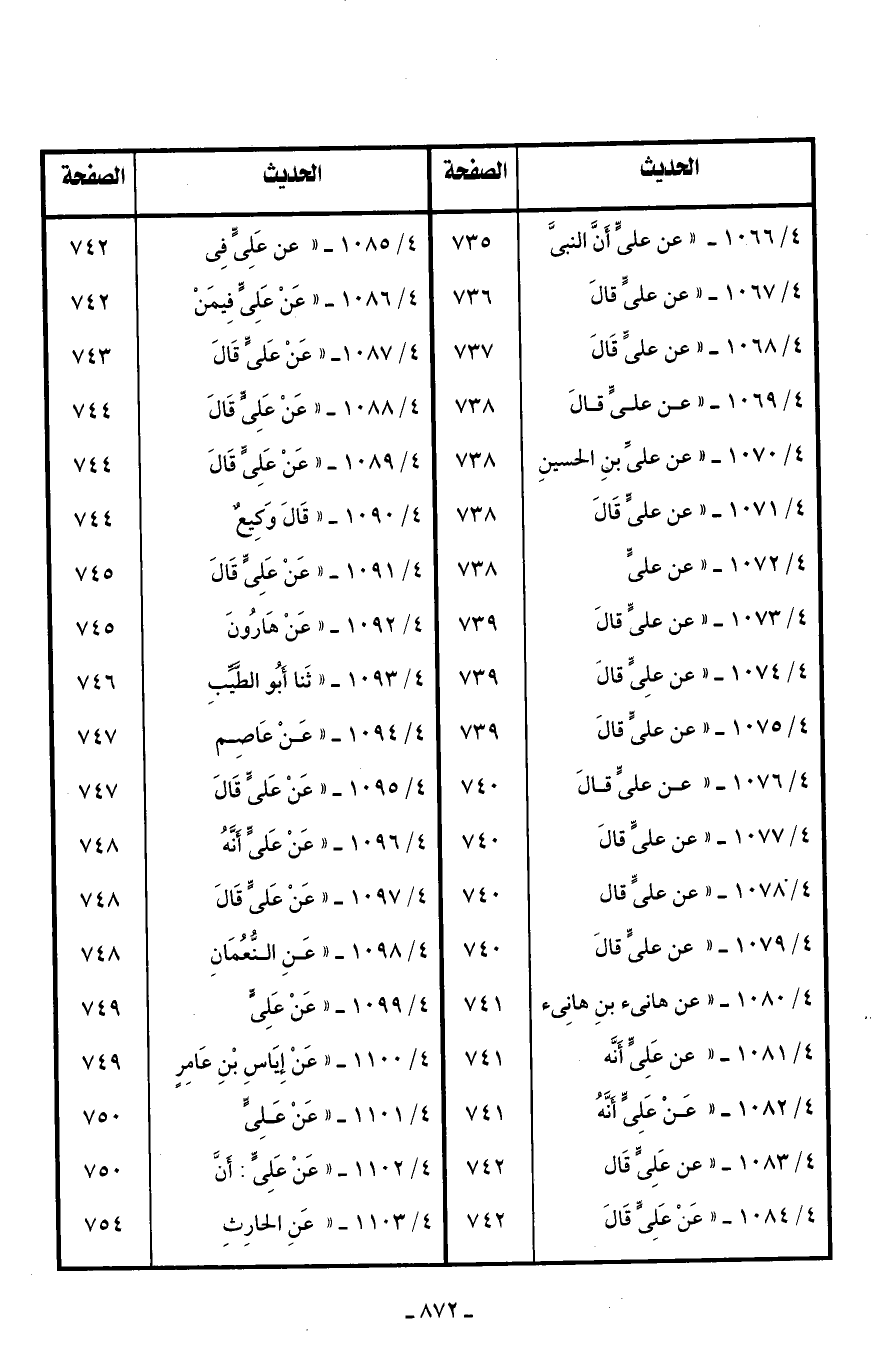 الحديث الصفحة الحديث الصفحة
٤/ ١٠٦٦ ـ « عن علىٍّ أَنَّ النبىَّ ٧٣٥ ٤/ ١٠٨٥ ـ « عن عَلِىٍّ فِى ٧٤٢
٤/ ١٠٦٧ ـ « عن علىٍّ قالَ ٧٣٦ ٤/ ١٠٨٦ ـ « عَنْ عَلِىٍّ فِيمَنْ ٧٤٢
٤/ ١٠٦٨ ـ « عن علىٍّ قَالَ ٧٣٧ ٤/ ١٠٨٧ـ « عَنْ عَلىٍّ قَالَ ٧٤٣
٤/ ١٠٦٩ ـ « عـن علـىٍّ قـالَ ٧٣٨ ٤/ ١٠٨٨ ـ « عَنْ عَلِىٍّ قَالَ ٧٤٤
٤/ ١٠٧٠ ـ « عن علىِّ بنِ الحسينِ ٧٣٨ ٤/ ١٠٨٩ ـ « عَنْ عَلِىٍّ قَالَ ٧٤٤
٤/ ١٠٧١ ـ « عن علىٍّ قَالَ ٧٣٨ ٤/ ١٠٩٠ ـ « قَالَ وَكِيعٌ ٧٤٤
٤/ ١٠٧٢ ـ « عن علىٍّ ٧٣٨ ٤/ ١٠٩١ ـ « عَنْ عَلِىٍّ قَالَ ٧٤٥
٤/ ١٠٧٣ ـ « عن علىٍّ قالَ ٧٣٩ ٤/ ١٠٩٢ ـ « عَنْ هَارُونَ ٧٤٥
٤/ ١٠٧٤ ـ « عن علىٍّ قالَ ٧٣٩ ٤/ ١٠٩٣ ـ « ثَنا أَبُو الطَّيِّبِ ٧٤٦
٤/ ١٠٧٥ ـ « عن علىٍّ قالَ ٧٣٩ ٤/ ١٠٩٤ ـ « عَـنْ عَاصِـم ٧٤٧
٤/ ١٠٧٦ ـ « عـن علىٍّ قـالَ ٧٤٠ ٤/ ١٠٩٥ ـ « عَنْ عَلىٍّ قَالَ ٧٤٧
٤/ ١٠٧٧ ـ « عن علىٍّ قالَ ٧٤٠ ٤/ ١٠٩٦ ـ « عَنْ عَلىٍّ أَنَّهُ ٧٤٨
٤/ ١٠٧٨ ـ « عن علىٍّ قال ٧٤٠ ٤/ ١٠٩٧ ـ « عَنْ عَلىٍّ قَالَ ٧٤٨
٤/ ١٠٧٩ ـ « عن علىٍّ قالَ ٧٤٠ ٤/ ١٠٩٨ ـ « عَـنِ الـنُّعْمَانِ ٧٤٨
٤/ ١٠٨٠ ـ « عن هانىء بنِ هانِىء ٧٤١ ٤/ ١٠٩٩ ـ « عَنْ عَلِىٍّ ٧٤٩
٤/ ١٠٨١ ـ « عن عَلِىٍّ أَنَّه ٧٤١ ٤/ ١١٠٠ ـ « عَنْ إِيَاسِ بْنِ عَامِرٍ ٧٤٩
٤/ ١٠٨٢ ـ « عَـنْ عَلِىٍّ أَنَّهُ ٧٤١ ٤/ ١١٠١ ـ « عَنْ عَـلِىٍّ ٧٥٠
٤/ ١٠٨٣ ـ « عن عَلِىٍّ قَال ٧٤٢ ٤/ ١١٠٢ ـ « عَنْ عَلِىٍّ : أَنَّ ٧٥٠
٤/ ١٠٨٤ ـ « عَنْ عَلِىٍّ قَالَ ٧٤٢ ٤/ ١١٠٣ ـ « عَنِ الحارِثِ ٧٥٤
ـ ٨٧٢ ـ